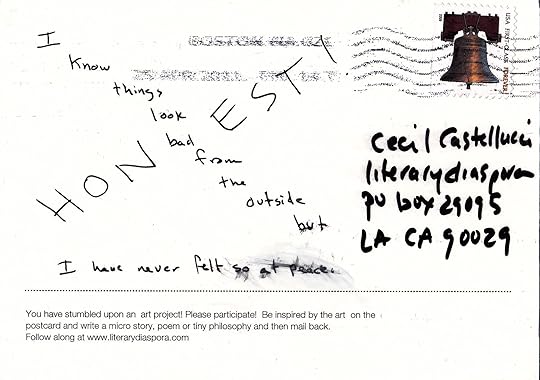 I
know
things
look
bad
from
the
outside
but
HONESTY
I have never felt so at peace.
USA FIRST-CLASS FOREVER
Cecil Castellucci
literarydiaspora
po box 29095
LA CA 90029
You have stumbled upon an art project! Please participate! Be inspired by the art on the
postcard and write a micro story, poem or tiny philosophy and then mail back.
Follow along at www.literarydiaspora.com